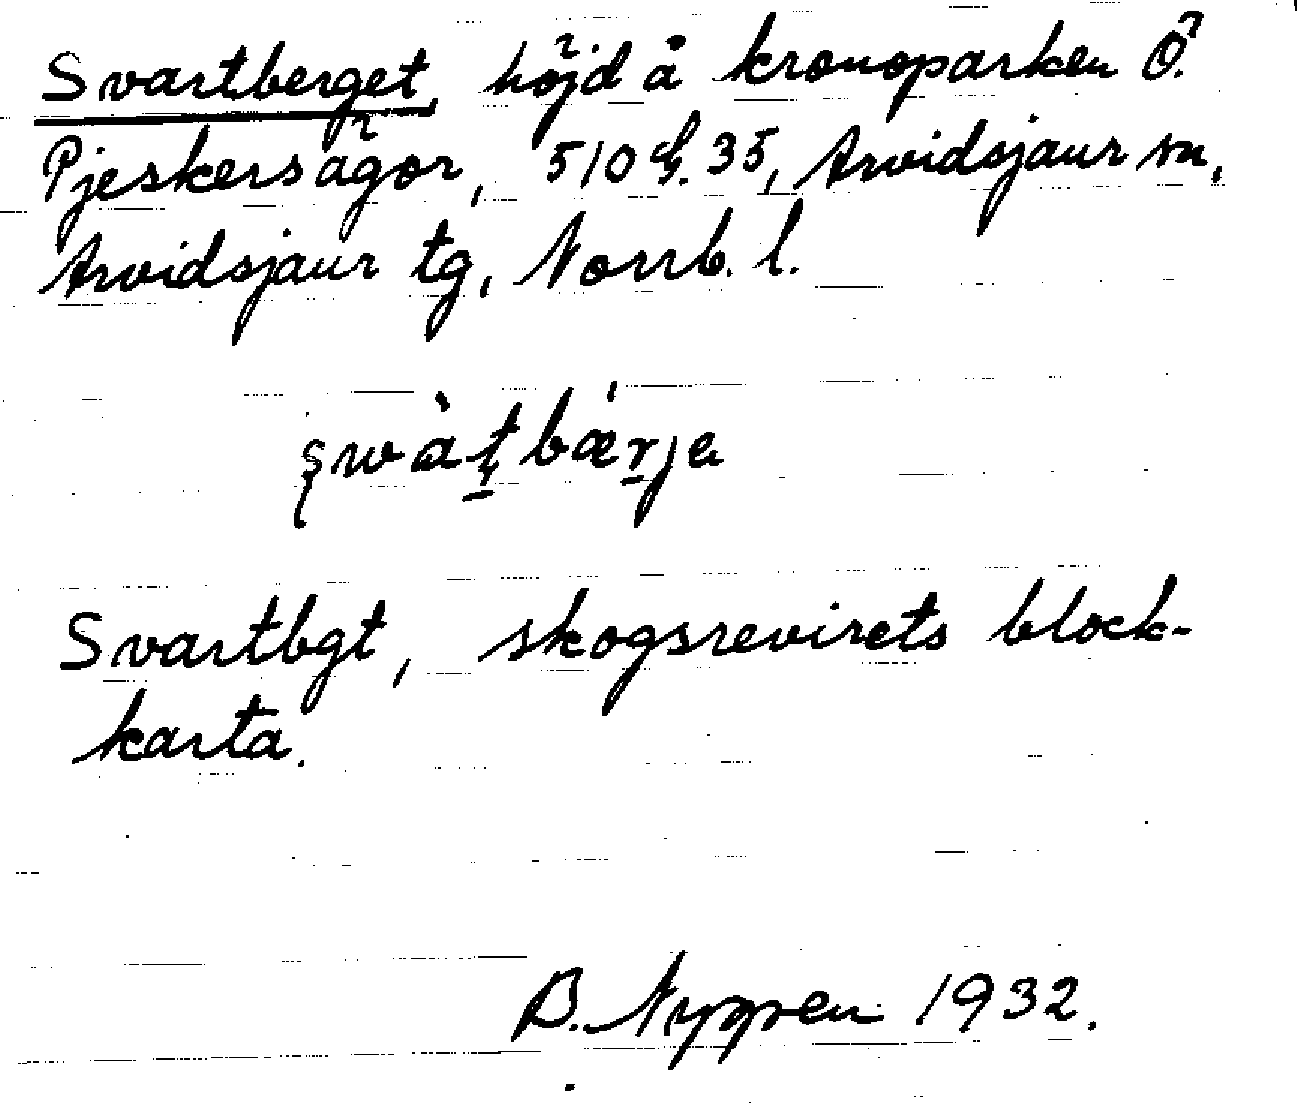 Svartberget, höjd å kronoparken Ö.
Pjeskersägor, 510 q. 35, Arvidsjaur sn,
Arvidsjaur tg, Norrb. l.
ʂwàʈbærja
Svartbgt, skogsrevirets block-
karta.
B. Nygren 1932.